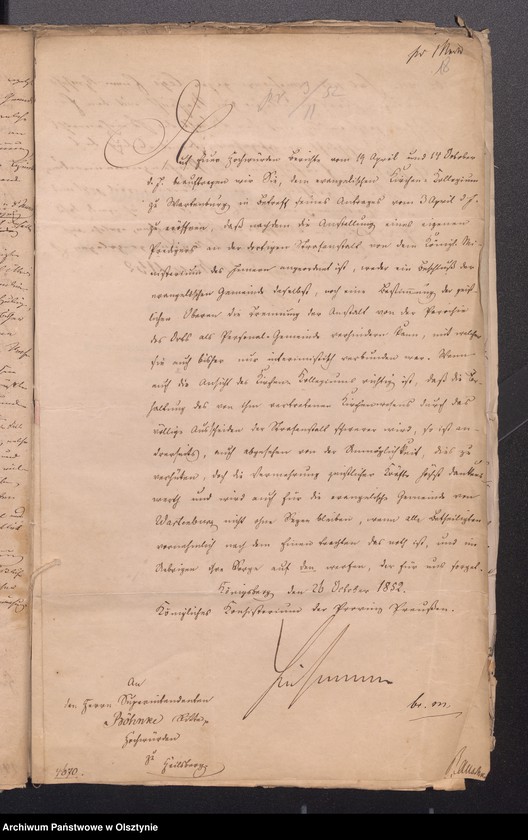 Auf Euer Hochwürden Berichte vom 19 April und 14 October
d. J. beauftragen wir Sie, dem evangelischen Kirchen-Kollegium
zu Wartenburg in Betreff seines Antrages vom 3 April d. J.
zu eröffnen, daß nachdem die Anstellung eines eigenen
Predigers an der dortigen Strafanstalt von dem Königl. Mi-
nisterium des Innern angeordnet ist, weder ein Beschluß der
evangelischen Gemeinde daselbst, noch eine Bestimmung der geist-
lichen Oberen die Trennung der Anstalt von der Parochie
des Orts als Personal-Gemeinde verhindern kann, mit welcher
sie auch bisher nur interimistisch verbunden war. Wenn
auch die Ansicht des Kirchen-Kollegiums richtig ist, daß die Er-
haltung des von ihm vertretenen Kirchenwesens durch das
völlige Ausscheiden der Strafanstalt schwerer wird, so ist an-
drerseits, auch abgesehen von der Unmöglichkeit, dies zu
verhüten, doch die Vermehrung geistlicher Kräfte höchst dankens-
werth und wird auch für die evangelische Gemeinde von
Wartenburg nicht ohne Segen bleiben, wenn alle Betheiligten
vornehmlich nach dem Einen trachten das noth ist, und im
Uebrigen ihre Sorge auf den werfen, der für uns sorget.
Königsberg den 26 October 1852.
Königliches Konsistorium der Provinz Preußen.
An
den Herrn Superintendenten
Böhnke Ritter
Hochwürden
zu Heilsberg
br. m.
4670.
Archiwum Państwowe w Olsztynie